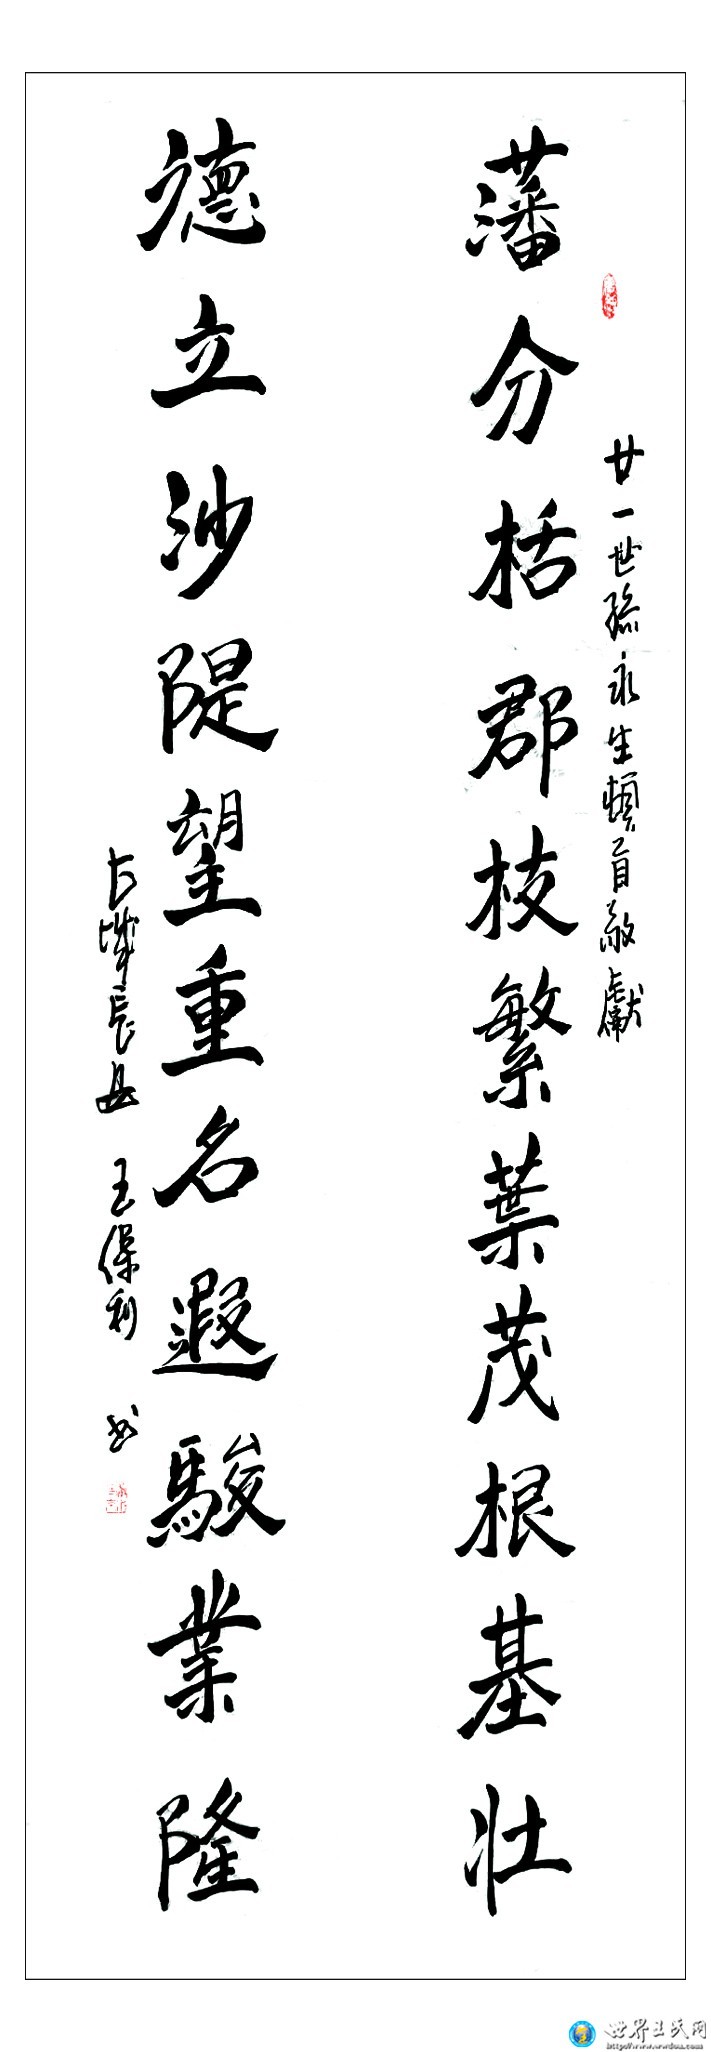 廿一世孫永生頓首敬獻
藩分栝郡枝繁葉茂根基壯
德立沙隄望重名遐駿業隆
古城長安 王保利 书
世界王氏网
http://www.wwdou.com/